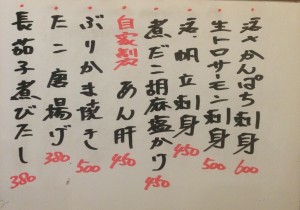 活〆かんぱち刺身 600
生トロサーモン刺身 500
活帆立刺身 450
煮だこ胡麻塩かけ 450
自家製 あん肝 450
ぶりかま焼き 500
たこ唐揚げ 380
長茄子煮びたし 380